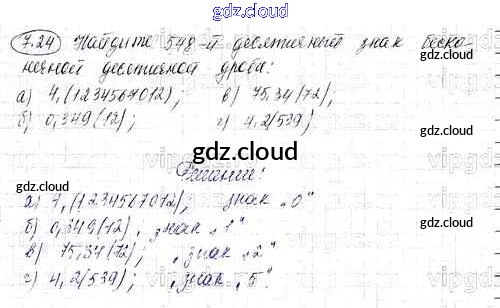 gdz.cloud
7.24 Найдите 548-й десятичный знак беско-
нечной десятичной дроби:
а) 4,(1234567012); в) 75,34(72);
б) 0,349(12); г) 4,2(539)
gdz.cloud
gdz.cloud
Решение:
а) 7,(1234567012), знак „0"
б) 0,349(12), знак „1"
в) 75,34(72), „знак „2"
г) 4,2(539); „знак „5".
gdz.cloud
gdz.cloud